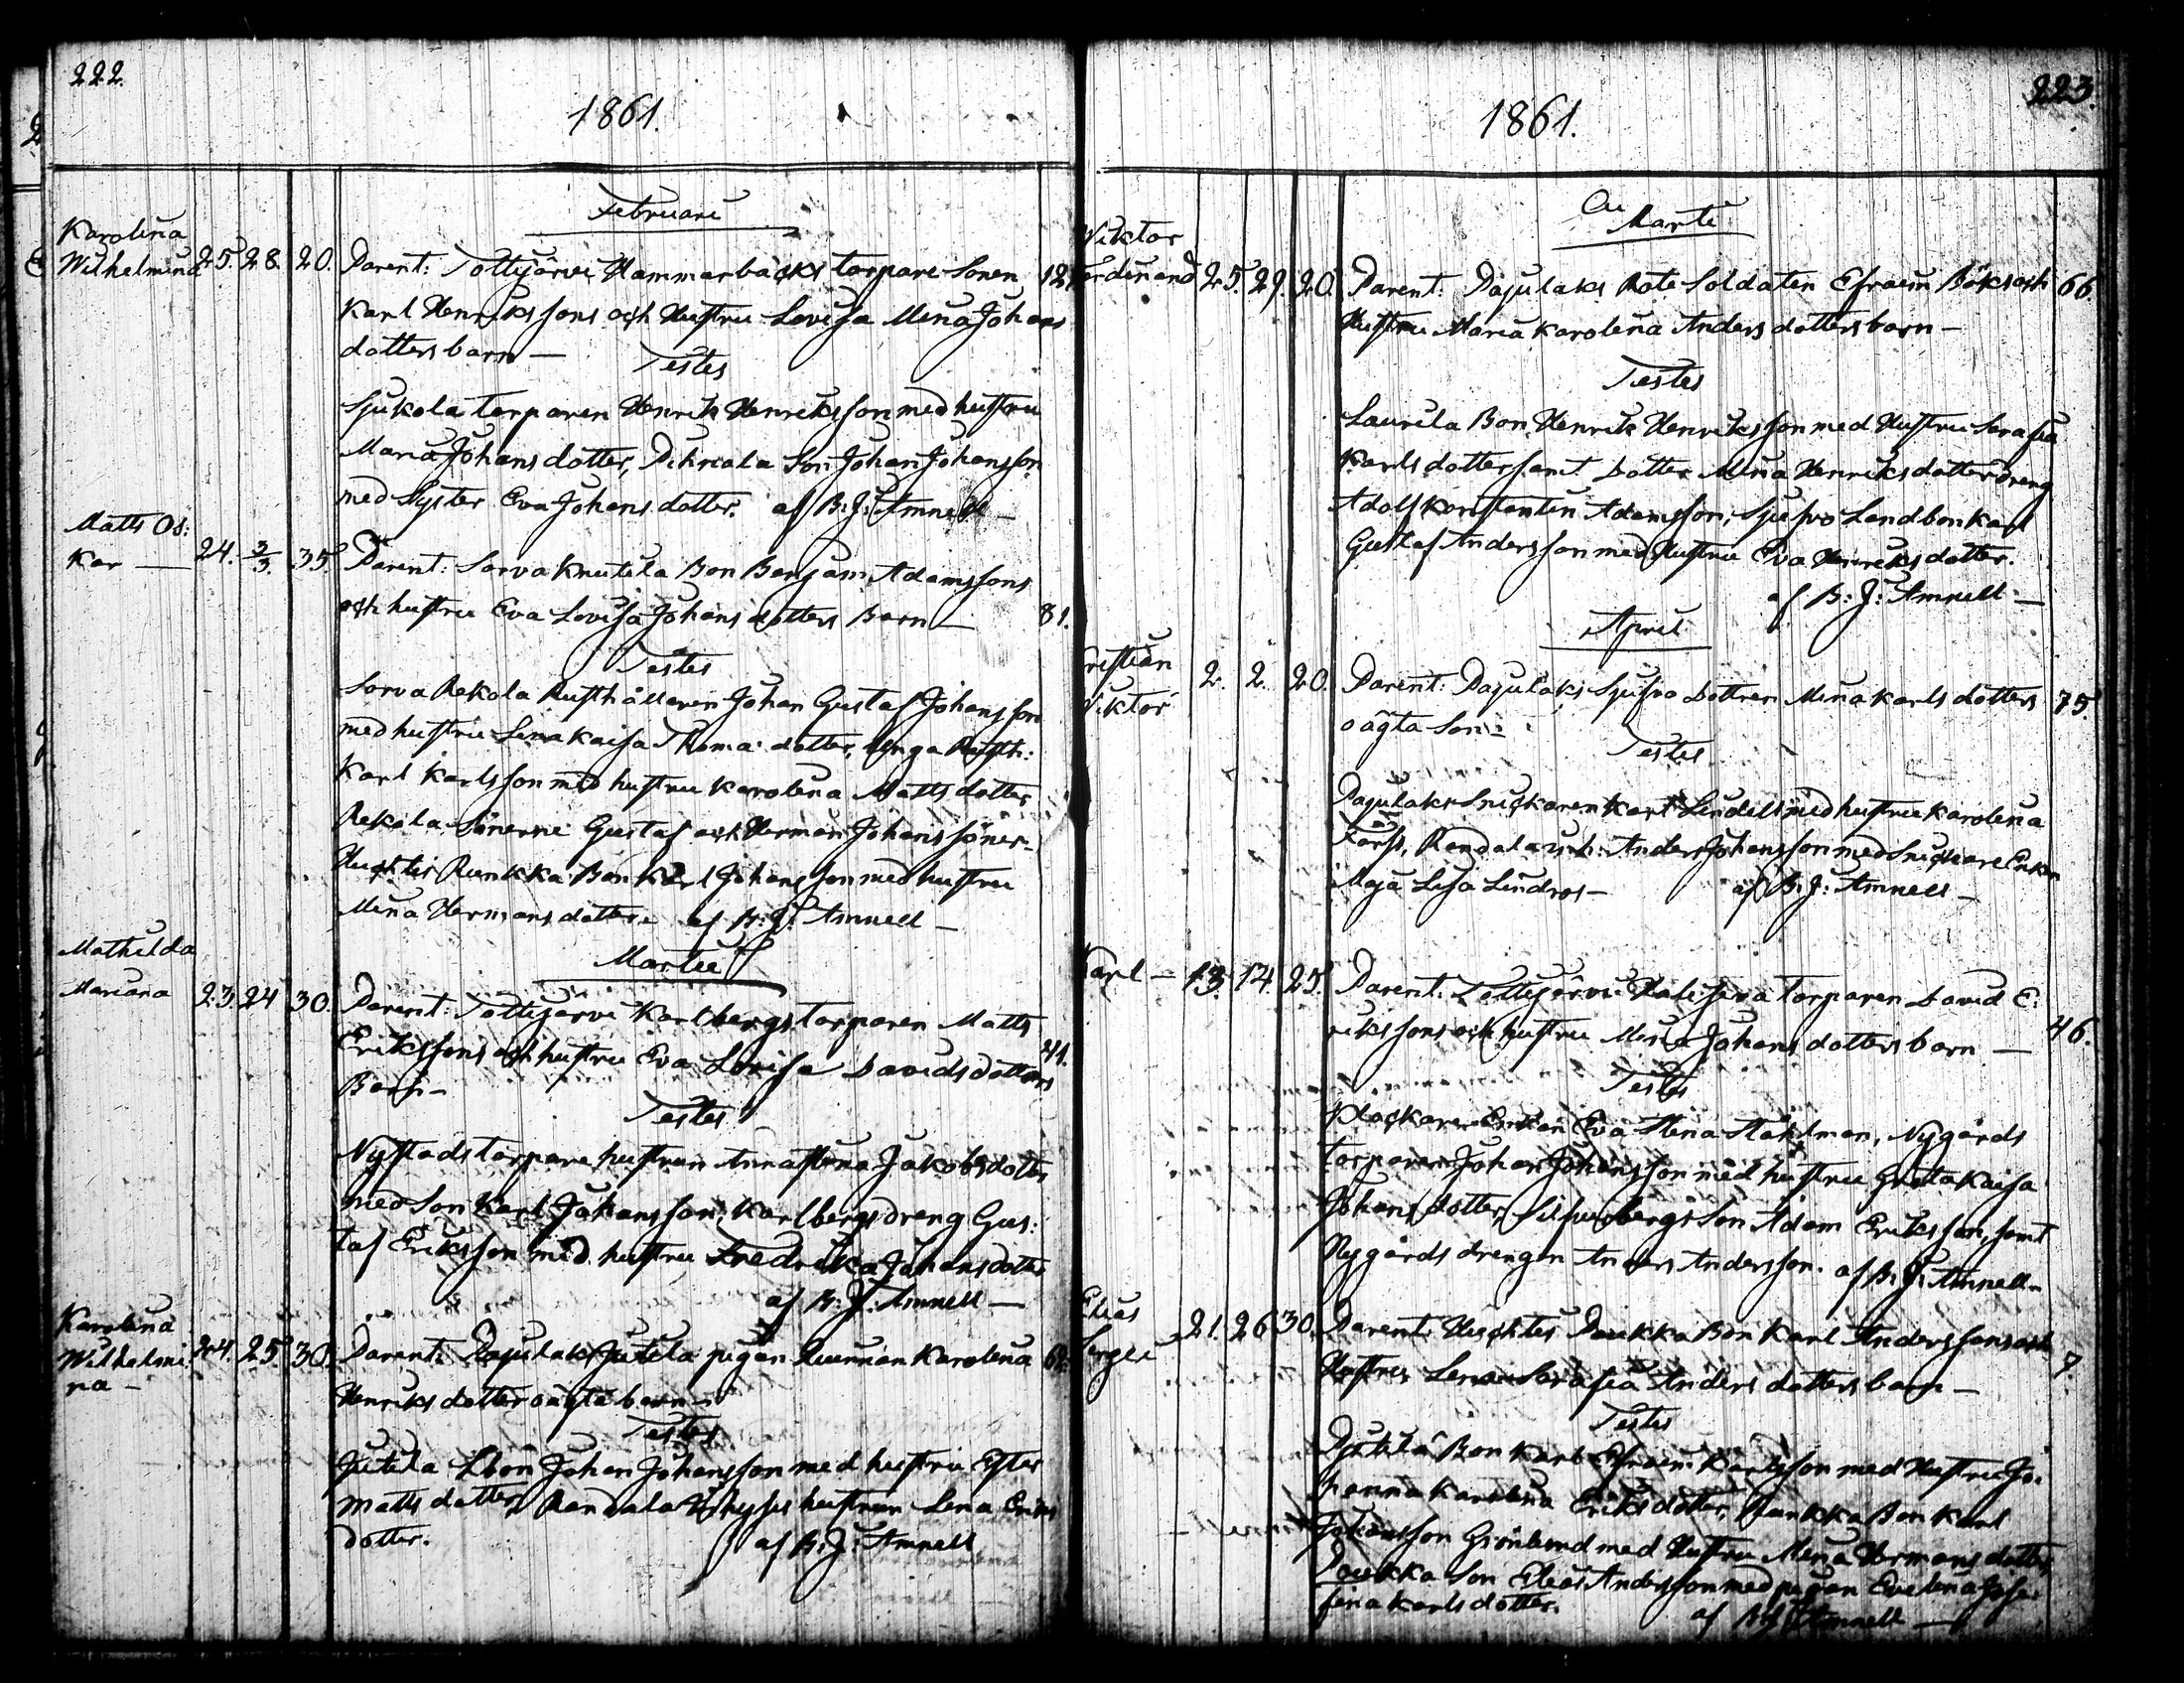 222.
1861.
Februari
Karolina
Wilhelmina 25. 28. 20. Parent: Tottijärvi Hammarbäcks torpare Sonen 12.
Karl Henrikssons och Hustru Lovisa Mina Johans
dotters barn —
Testes
Sjukola torparen Henrik Henriksson med hustru
Maria Johans dotter, Pihnala Son Johan Johansson
med Syster Eva Johans dotter. af B: J: Amnell —
Matts Os:
kar — 24. 3/3. 35. Parent: Sorva Knutila Bon Benjam: Adamssons
och hustru Eva Lovisa Johans dotters Barn — 81.
Testes
Sorva Rekola Rusthållaren Johan Gustaf Johansson
med hustru Lena Kaisa Thoma dotter, Rusth:
Karl Karlsson med hustru Karolina Matts dotter
Rekola Sönerne Gustaf och Herman Johanssöner
Huchtis Runkka Bon Karl Johansson med hustru
Mina Hermans dotter. af B: J: Amnell —
Martii
Mathilda
Mariana 23. 24 30. Parent: Tottijärvi Karlbergs torparen Matts
Erikssons och hustru Eva Lovisa Davidsdotters 41.
Barn —
Testes
Nystads torpare hustrun Anna Stina Jakobsdotter
med Son Karl Johansson, Karlbergs dreng Gus:
taf Eriksson med hustru Fredrika Johansdotter
af B: J: Amnell —
Karolina
Wilhelmi
na — 24. 25. 30. Parent: Pajulaks Jutila pigan Karolina
Henriks dotter oägta barn —
Testes
Jutila Lbon Johan Johansson med hustru Ester
Matts dotter, Randala hustrun Lena Eriks
dotter. af B: J: Amnell
223.
1861.
Martii
Viktor
Ferdinand 25. 29. 20. Parent: Pajulaks Rote Soldaten Efraim Böks och 66.
Hustru Maria Karolina Anders dotters barn —
Testes
Laurila Bon Henrik Henriksson med Hustru Serafia
Karls dotter samt Dotter Mina Henriksdotter dreng
Adolf Konstantin Adamsson, Landbon Karl
Gustaf Andersson med Hustru Eva Henriks dotter.
af B: J: Amnell —
April
Kristian
Viktor 2. 2. 20. Parent: Pajulaks Dottren Mina Karls dotters 75.
oägta Son —
Testes
Pajulaks Snickaren Karl Lindell med hustru Karolina
Fors, Randala Anders Johansson med Snickare Enkan
Maja Lisa Lindros — af B: J: Amnell —
Karl — 13. 14. 25. Parent: Tottijärvi torparen David E:
rikssons och hustru Mina Johans dotters barn — 46.
Testes
Klockare Enkan Eva Stina Ståhlman, Nygårds
torparen Johan Johansson med hustru Greta Kaisa
Johans dotter, Silfverbergs Son Adam Eriksson, samt
Nygårds drengen Anders Andersson. af B: J: Amnell —
Elias
Sergei 21. 26 30. Parent: Huchtis Paukka Bon Karl Anderssons och 7
Hustru Lena Serafia Anders dotters barn —
Testes
Bon Karl Efraim Karlsson med Hustru Jo:
hanna Karolina Eriks dotter, Runkka Bon Karl
Johansson Grönlund med Hustru Mina Hermans dotter,
Paukka Son Elias Andersson med pigan Evelina Jose
fina Karls dotter. af B: J: Amnell —